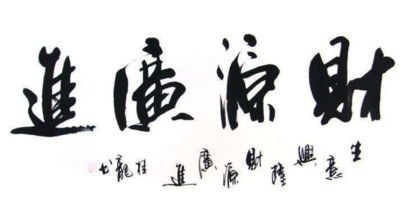 財源廣進
生意興隆財源廣進
桂龍書